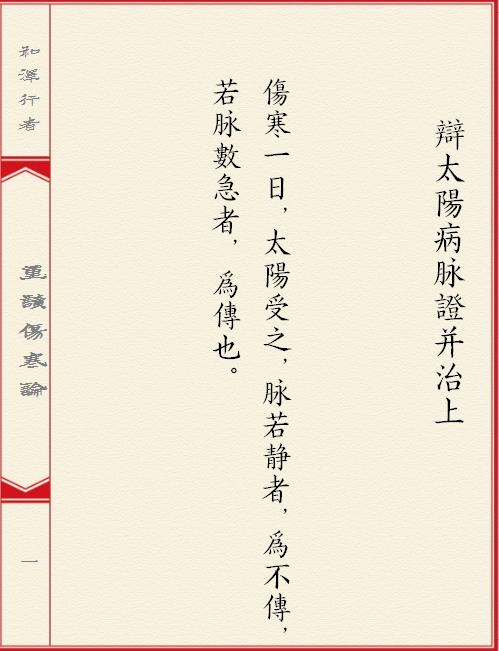 辯太陽病脉證并治上
傷寒一日，太陽受之，脉若静者，爲不傳，
若脉數急者，爲傳也。
和澤行者
重讀傷寒論
一